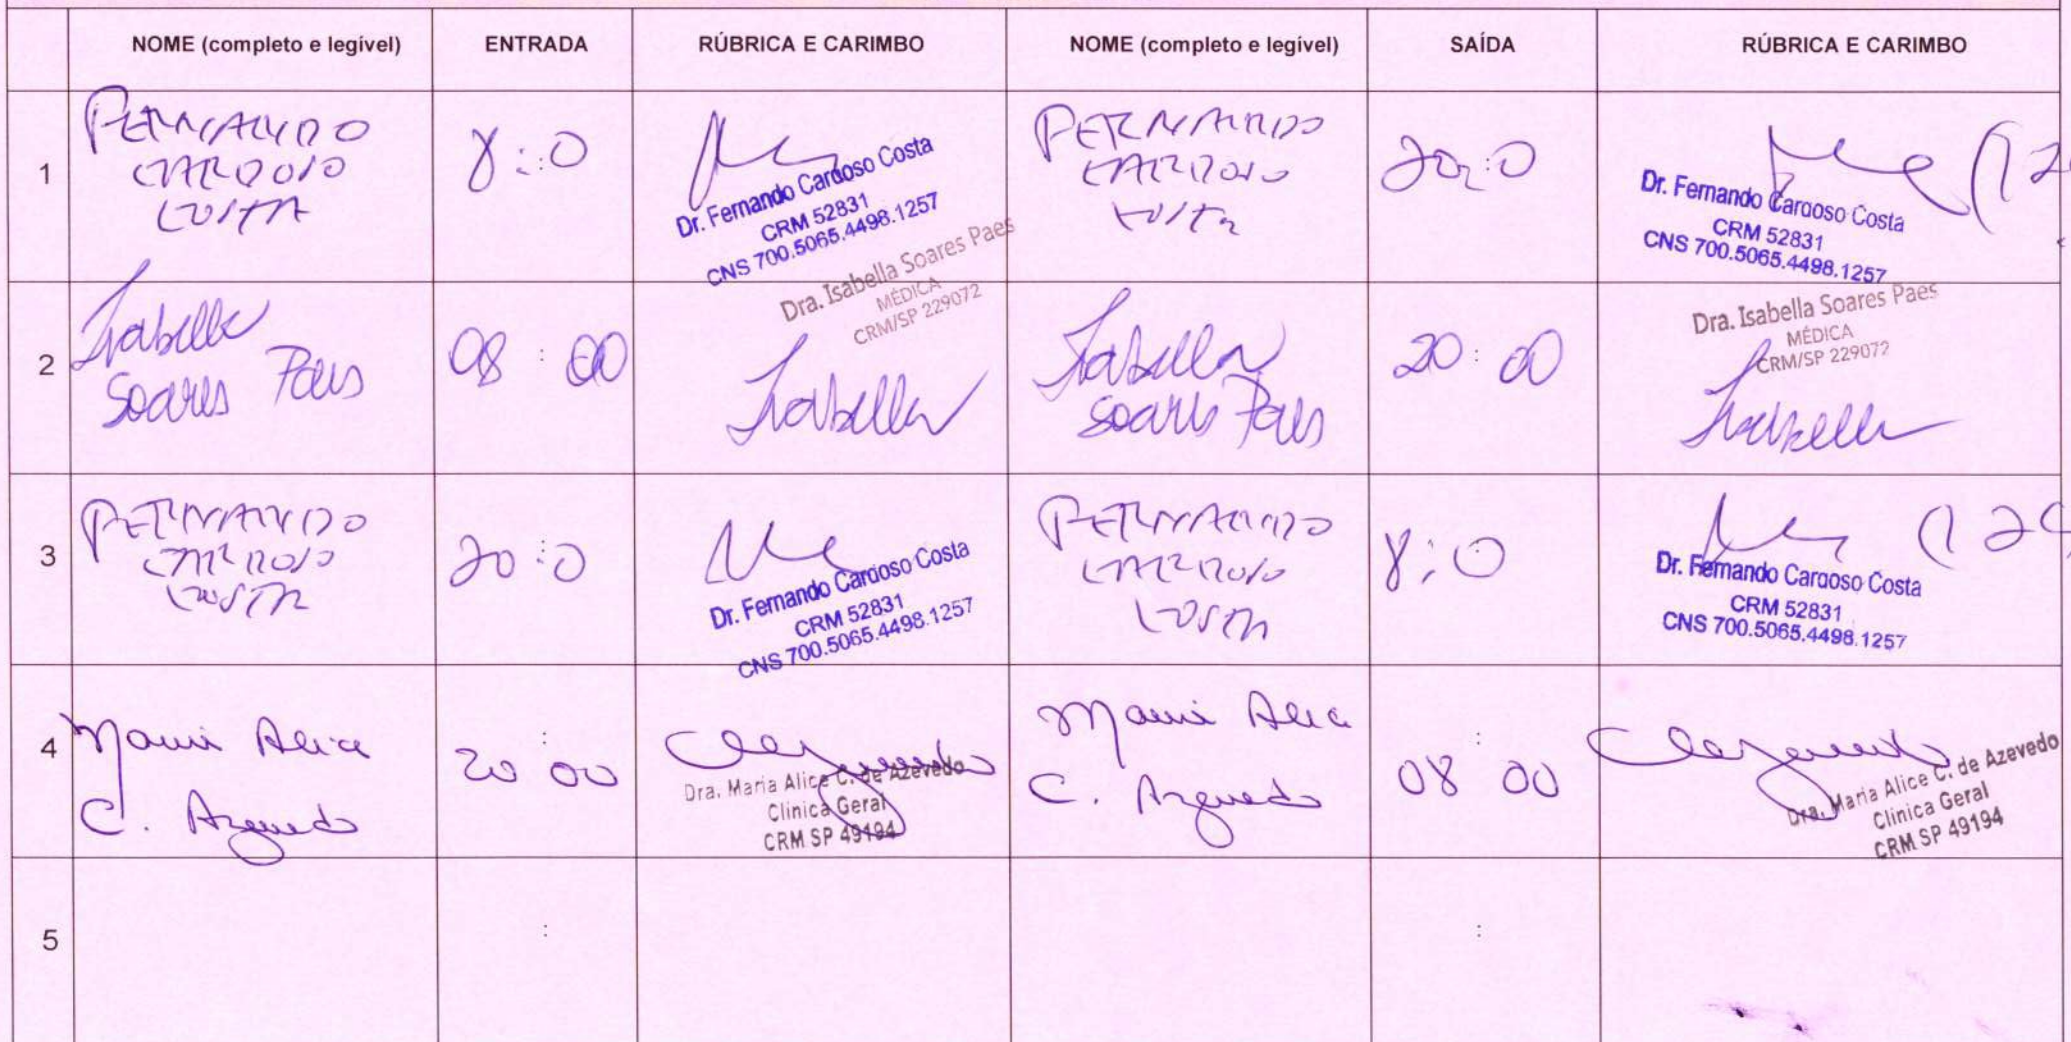 NOME (completo e legível) ENTRADA RÚBRICA E CARIMBO NOME (completo e legível) SAÍDA RÚBRICA E CARIMBO
1
FERNANDO
CARDOSO
COSTA
8:0
Dr. Fernando Cardoso Costa
CRM 52831
CNS 700.5065.4498.1257
FERNANDO
CARDOSO
COSTA
20:0
Dr. Fernando Cardoso Costa
CRM 52831
CNS 700.5065.4498.1257
2
Isabella
Soares Paes
08:00
Dra. Isabella Soares Paes
MÉDICA
CRM/SP 229072
Isabella
Isabella
Soares Paes
20:00
Dra. Isabella Soares Paes
MÉDICA
CRM/SP 229072
Isabella
3
FERNANDO
CARDOSO
COSTA
20:0
Dr. Fernando Cardoso Costa
CRM 52831
CNS 700.5065.4498.1257
FERNANDO
CARDOSO
COSTA
8:0
Dr. Fernando Cardoso Costa
CRM 52831
CNS 700.5065.4498.1257
4
Maria Alice
C. Azevedo
20:00
Dra. Maria Alice C. de Azevedo
Clinica Geral
CRM SP 49194
Maria Alice
C. Azevedo
08:00
Dra. Maria Alice C. de Azevedo
Clinica Geral
CRM SP 49194
5
: :